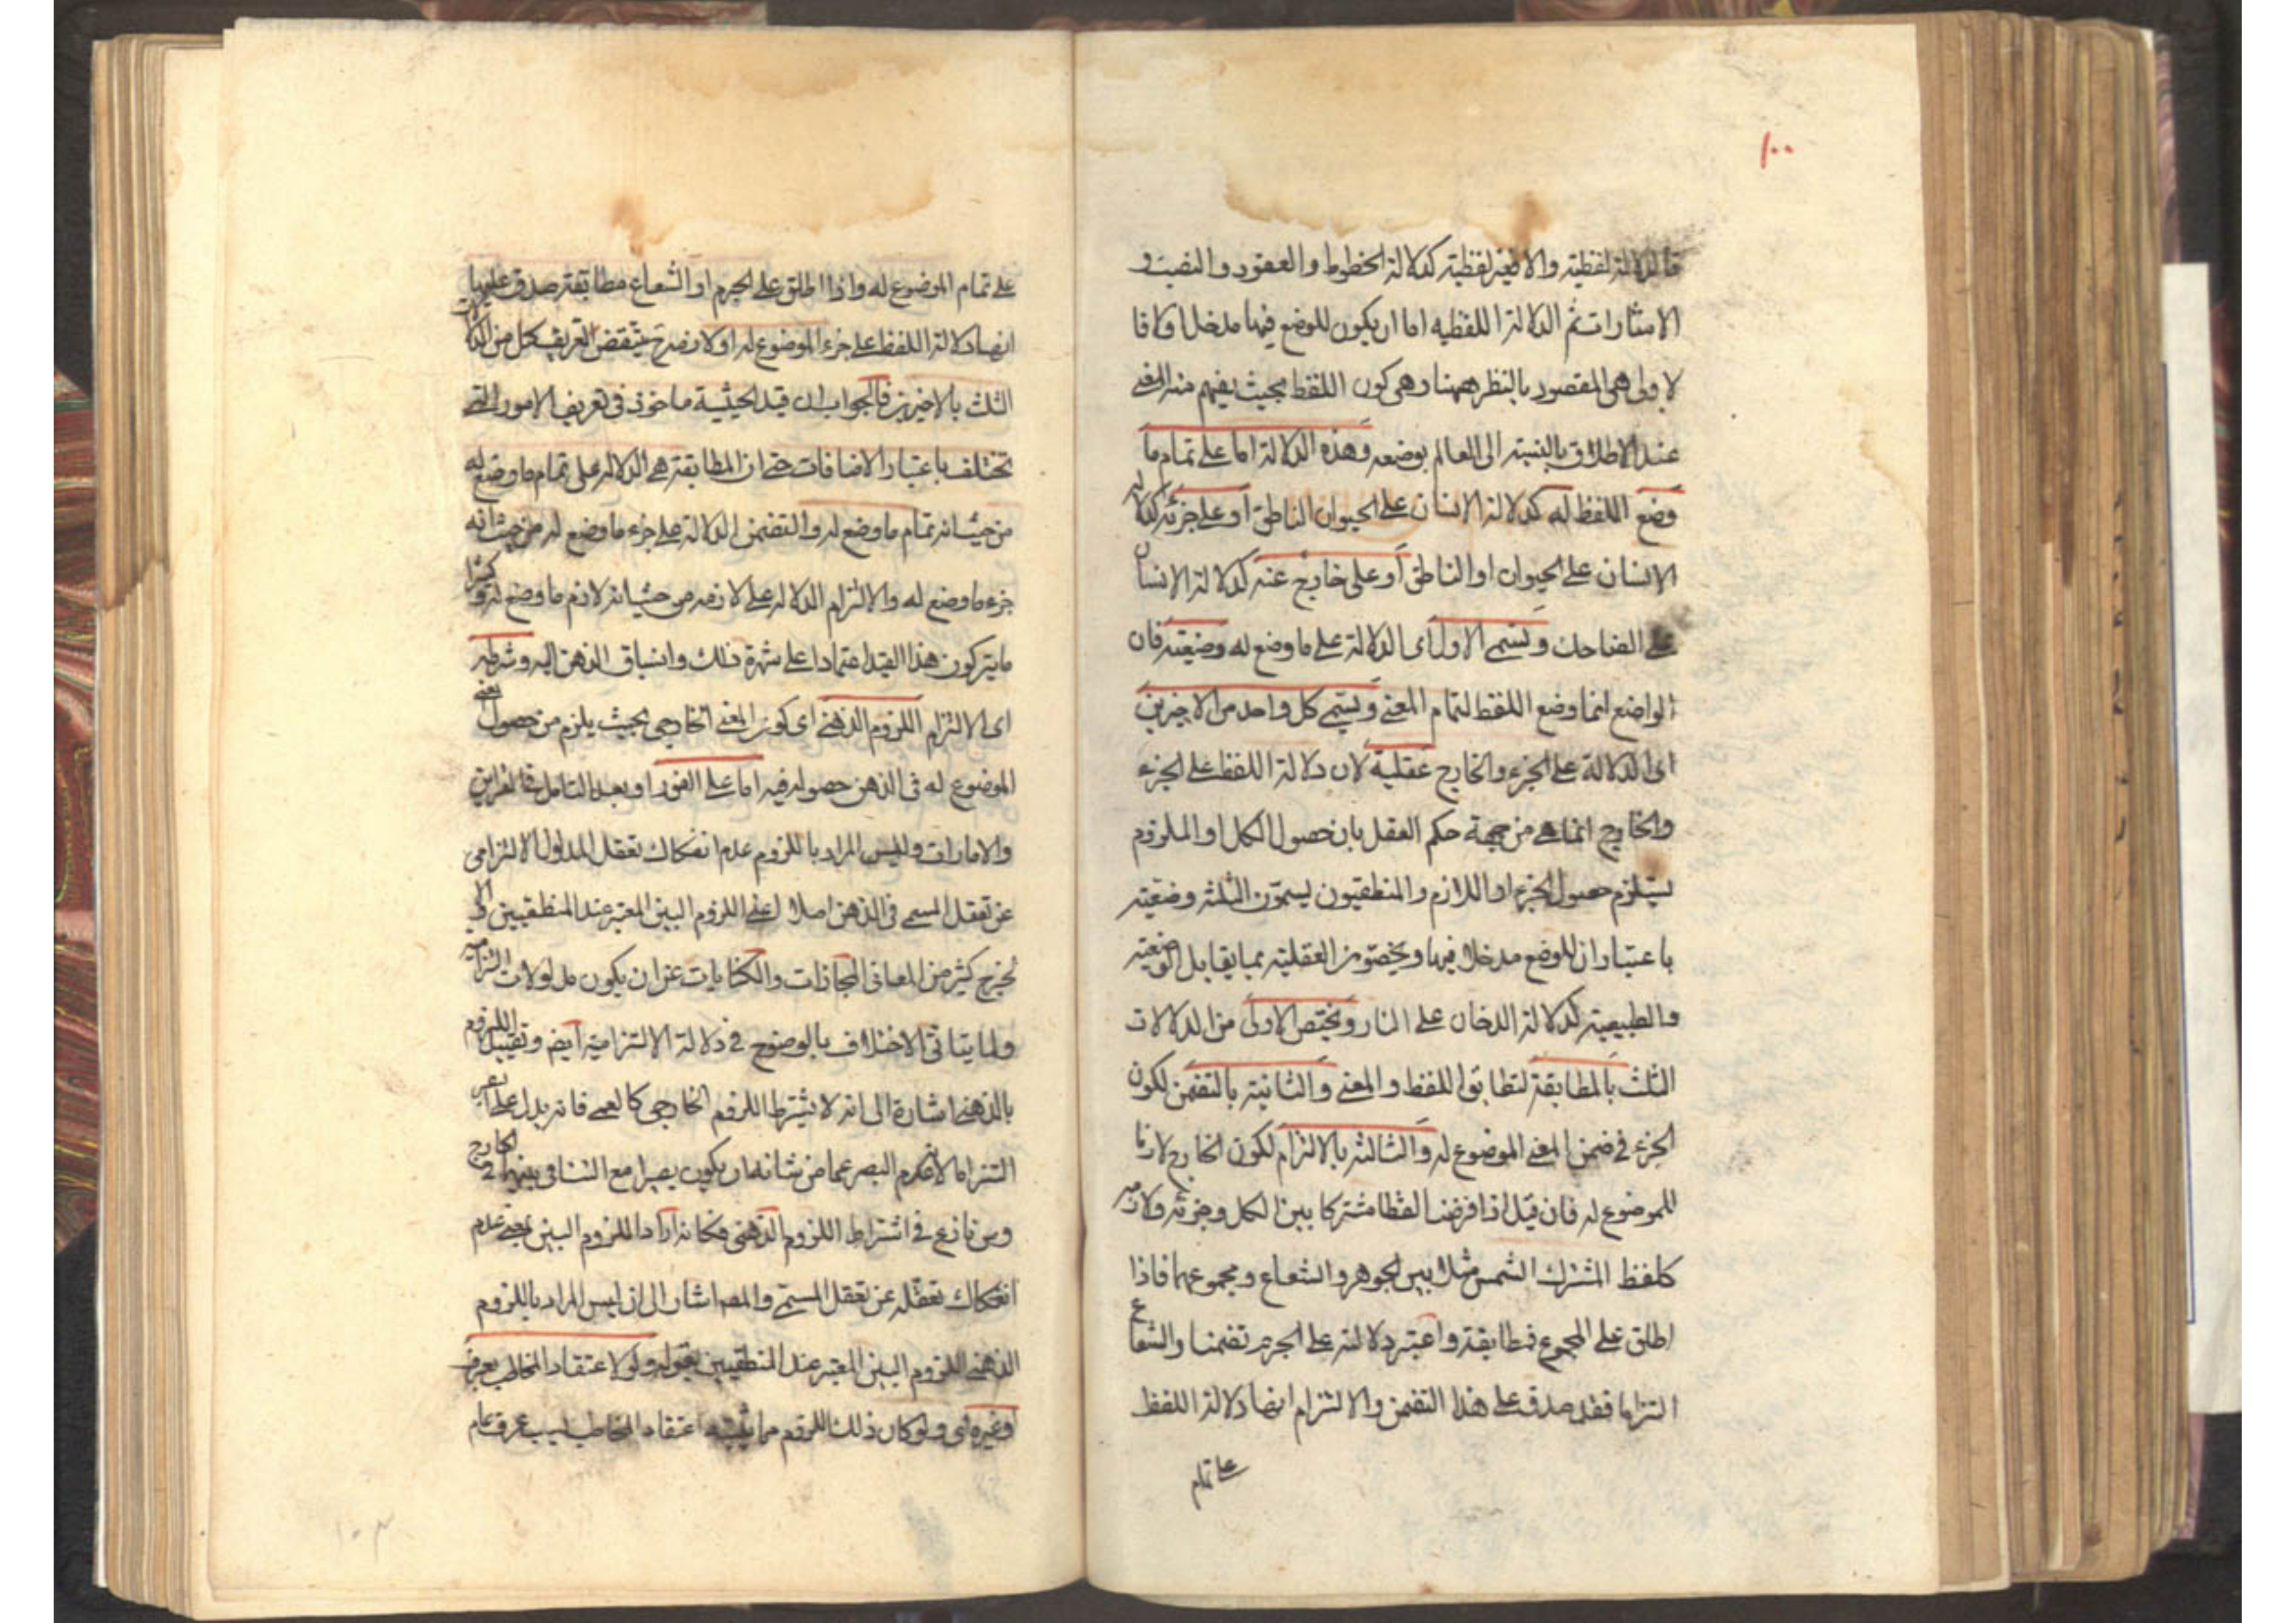 ١٠٠
فالدلالة لفظية والا فغير لفظية كدلالة الخطوط والعقود والنصب و
الاشارات ثم الدلالة اللفظيه اما ان يكون للوضع فيها مدخل اولا فا
لاولى هى المقصود بالنظر ههنا وهى كون اللفظ بحيث يفهم منه المعنى
عند الاطلاق بالنسبة الى العالم بوضعه وهذه الدلالة اما على تمام ما
وضع اللفظ له كدلالة الانسان على الحيوان الناطق او على جزئه كدلالة
الانسان على الحيوان او الناطق او على خارج عنه كدلالة الانسان
على الضاحك وتسمى الاولى اى الدلالة على ما وضع له وضعية فان
الواضع انما وضع اللفظ لتمام المعنى ويسمى كل واحد من الاخيرين
اى الدلالة على الجزء والخارج عقلية لان دلالة اللفظ على الجزء
والخارج انما هى من جهة حكم العقل بان حصول الكل او الملزوم
يستلزم حصول الجزء او اللازم والمنطقيون يسمون الثلثة وضعية
باعتبار ان للوضع مدخلا فيها ويخصون العقلية بما يقابل الوضعية
والطبيعية كدلالة الدخان على النار ويختص الاولى من الدلالات
الثلث بالمطابقة لتطابق اللفظ والمعنى والثانية بالتضمن لكون
الجزء فى ضمن المعنى الموضوع له والثالثة بالالتزام لكون الخارج لازما
للموضوع له فان قيل اذا فرضنا لفظا مشتركا بين الكل وجزئه ولازمه
كلفظ المشترك الشمس مثلا بين الجوهر والشعاع ومجموعهما فاذا
اطلق على المجموع مطابقة واعتبر دلالته على الجرم تضمنا والشعاع
التزاما فقد صدق على هذا التضمن والالتزام انها دلالة اللفظ
على تمام
على تمام الموضوع له واذا اطلق على الجرم او الشعاع مطابقة صدق عليها
انها دلالة اللفظ على جزء الموضوع له او لازمه وح ينتقض تعريف كل من الدلالات
الثلث بالاخيرين فالجواب ان قيد الحيثية ماخوذ فى تعريف الامور التى
تختلف باعتبار الاضافات حتى ان المطابقة هى الدلالة على تمام ما وضع له
من حيث انه تمام ما وضع له والتضمن الدلالة على جزء ما وضع له من حيث انه
جزء ما وضع له والالتزام الدلالة على لازمه من حيث انه لازم ما وضع له وكثيرا
ما يتركون هذا القيد اعتمادا على شهرة ذلك وانسباق الذهن اليه وشرطه
اى الالتزام اللزوم الذهنى اى كون المعنى الخارجى بحيث يلزم من حصول المعنى
الموضوع له فى الذهن حصوله فيه اما على الفور او بعد التامل فى القراين
والامارات وليس المراد باللزوم عدم انفكاك تعقل المدلول الالتزامى
عن تعقل المسمى فى الذهن اصلا اعنى اللزوم البين المعتبر عند المنطقيين والا
لخرج كثير من المعانى المجازات والكنايات عن ان يكون مدلولات التزامية
ولما يتاتى الاختلاف بالوضوح فى دلالة الالتزامية ايضا وتقييد اللزوم
بالذهنى اشارة الى انه لا يشترط اللزوم الخارجى كالعمى فانه يدل على البصر
التزاما لانه عدم البصر عما من شانه ان يكون بصيرا مع التنافى بينهما فى الخارج
ومن نازع فى اشتراط اللزوم الذهنى فكانه اراد اللزوم البين بمعنى عدم
انفكاك تعقله عن تعقل المسمى والمصـ اشار الى ان ليس المراد باللزوم
الذهنى اللزوم البين المعتبر عند المنطقيين بقوله ولو لاعتقاد المخاطب بعرف
او غيره اى ولو كان ذلك اللزوم مما يثبته اعتقاد المخاطب بسبب عرف عام
١٠٣